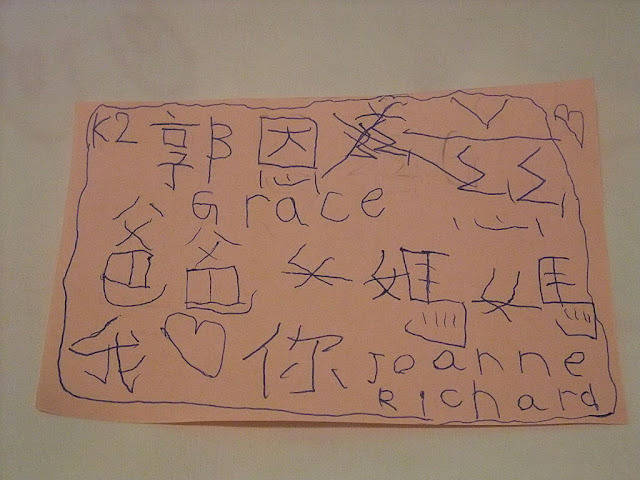 K2 郭恩慈
Grace
爸爸女媽媽
我♡你 Joanne
Richard